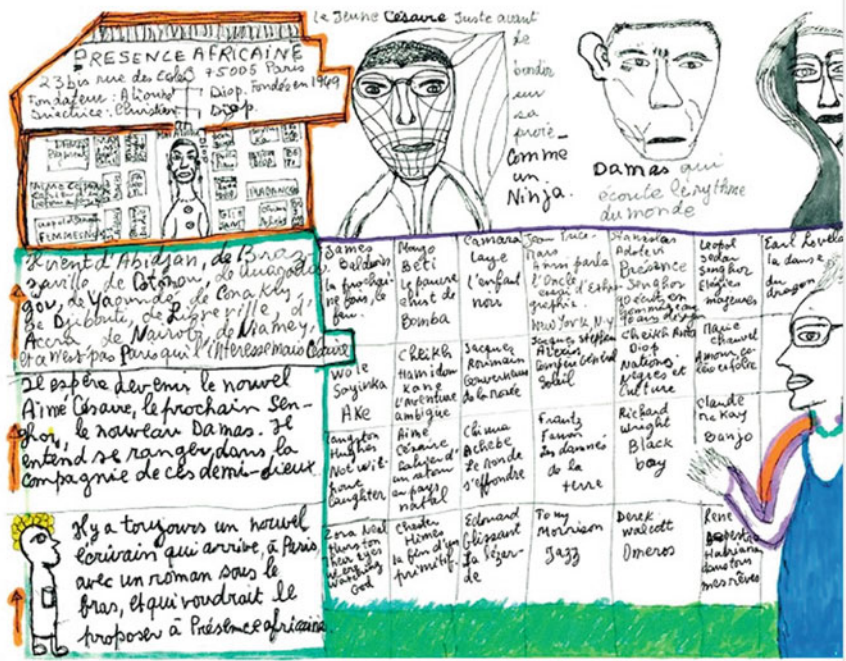 PRESENCE AFRICAINE
23 bis rue des Ecoles 75005 Paris
Fondateur: Alioune Diop. Fondée en 1949
Directrice: Christiane Diop.
DIOP
Le Jeune Césaire juste avant
de
bondir
sur
sa
proie_
Comme
un
Ninja.
Damas qui
écoute le rythme
du monde
Il vient d'Abidjan, de Braz
zaville, de Cotonou, de Ouagadou
gou, de Yaoundé, de Conakry,
de Djibouti, de Libreville, d'
Accra, de Nairobi, de Niamey,
et ce n'est pas Paris qui l'intéresse mais Césaire
Il espère devenir le nouvel
Aimé Césaire, le prochain Sen-
ghor, le nouveau Damas. Il
entend se ranger dans la
compagnie de ces demi-dieux.
Il y a toujours un nouvel
écrivain qui arrive, à Paris,
avec un roman sous le
bras, et qui voudrait le
proposer à Présence africaine.
James
Baldwin
la prochai
ne fois, le
feu.
Mongo
Beti
le pauvre
christ de
Bomba
Camara
Laye
l'enfant
noir
Jean Price-
Mars
Ainsi parla
l'Oncle
essai d'Ethno
graphie.
New York, N.Y
Stanislas
Adotevi
Présence
Senghor
90 écrits en
hommage aux
90 ans du pr
Leopol
Sedar
Senghor
Elégies
majeures
Earl Lovela
la danse
du
dragon
Wole
Soyinka
AKE
Cheikh
Hamidou
Kane
l'aventure
ambiguë
Jacques
Roumain
Gouverneurs
de la rosée
Jacques Stephen
Alexis
Compère Général
Soleil
Cheikh Anta
Diop
Nations
Nègres et
Culture
Marie
Chauvet
Amour, co-
lère et folie
Langston
Hughes
Not wit-
hout
laughter
Aimé
Césaire
Cahier d'
un retour
au pays
natal
Chinua
Achebe
Le monde
s'effondre
Frantz
Fanon
Les damnés
de la
terre
Richard
Wright
Black
boy
Claude
McKay
Banjo
Zora Neal
Hurston
Their eyes
were
watching
God
Chester
Himes
la fin d'un
primitif.
Edouard
Glissant
La lézar-
de
Tony
Morrison
Jazz
Derek
Walcott
Omeros
René
Depestre
Hadriana
dans tous
mes rêves